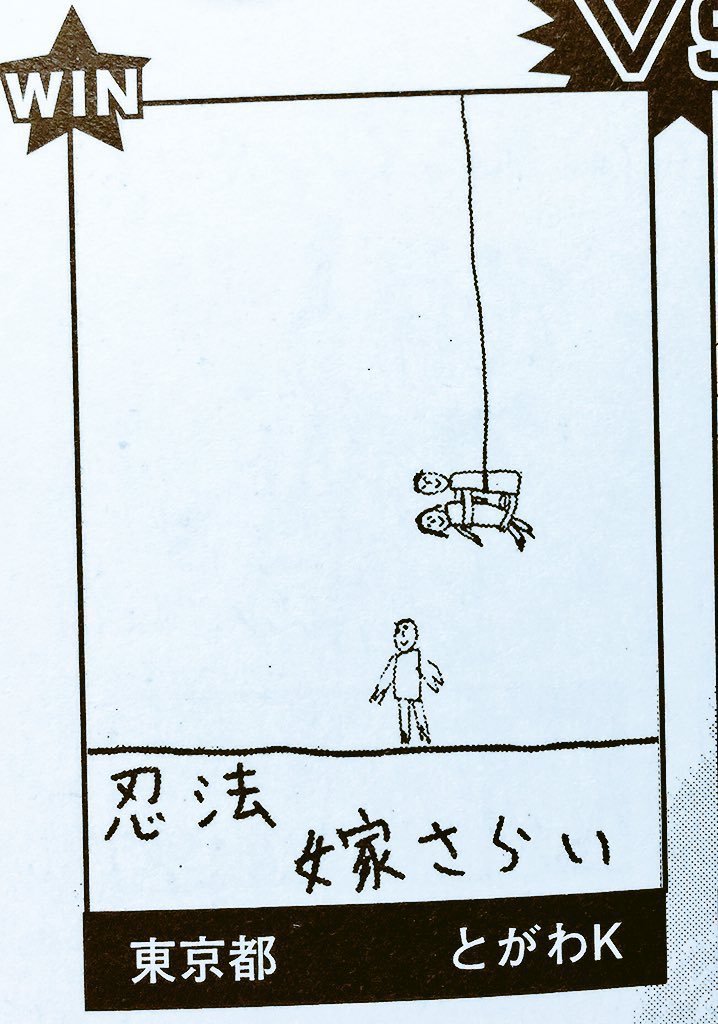 WIN
VS
忍法
嫁さらい
東京都 とがわK